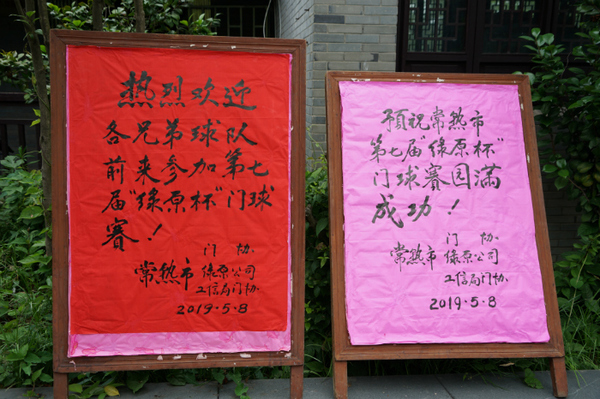 热烈欢迎
各兄弟球队
前来参加第七
届"缘原杯"门球
赛！
门协
常熟市 缘原公司
工信局门协
2019.5.8
预祝常熟市
第七届"缘原杯"
门球赛园满
成功！
门协
常熟市 缘原公司
工信局门协
2019.5.8